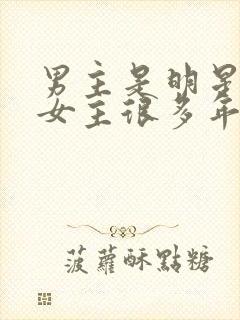 男主是明星
女主很多年
菠蘿酥點糖